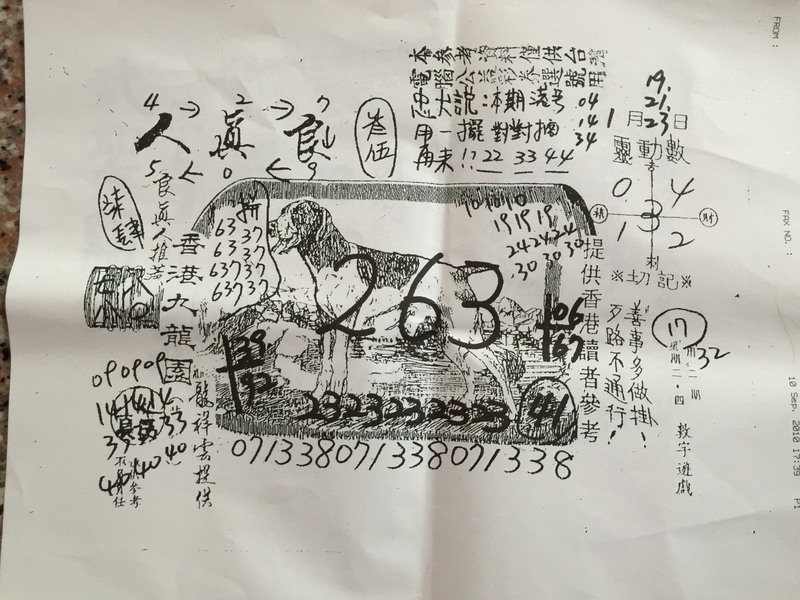 FROM :
FAX NO. :
10 Sep. 2010 17:39 P1
本參考資料僅供台灣
電腦公益彩券選號用
本期港号
用一擺對對摘
再來!! 22 33 44
04
14
34
19.
21.
1月23日
靈動數
0 4
3
1 2
財
利
※切記※
善事多做掛!
歹路不通行!
17
32
星期二.四
數字遊戲
提供香港讀者參考
4 → 2 → 7
人 真 良
5 ← 0 ← 9
叁伍
柒肆
良真人
香港九龍園
龍祥雲提供
63 37
63 37
637 37
637 37
10 10 10
19 19 19
24 24 24
30 30 30
263
06
67
39
32
23 23 23 23 23 23
41
071338071338071338
09 09 09
14 14 14
33
37
40
40
參考